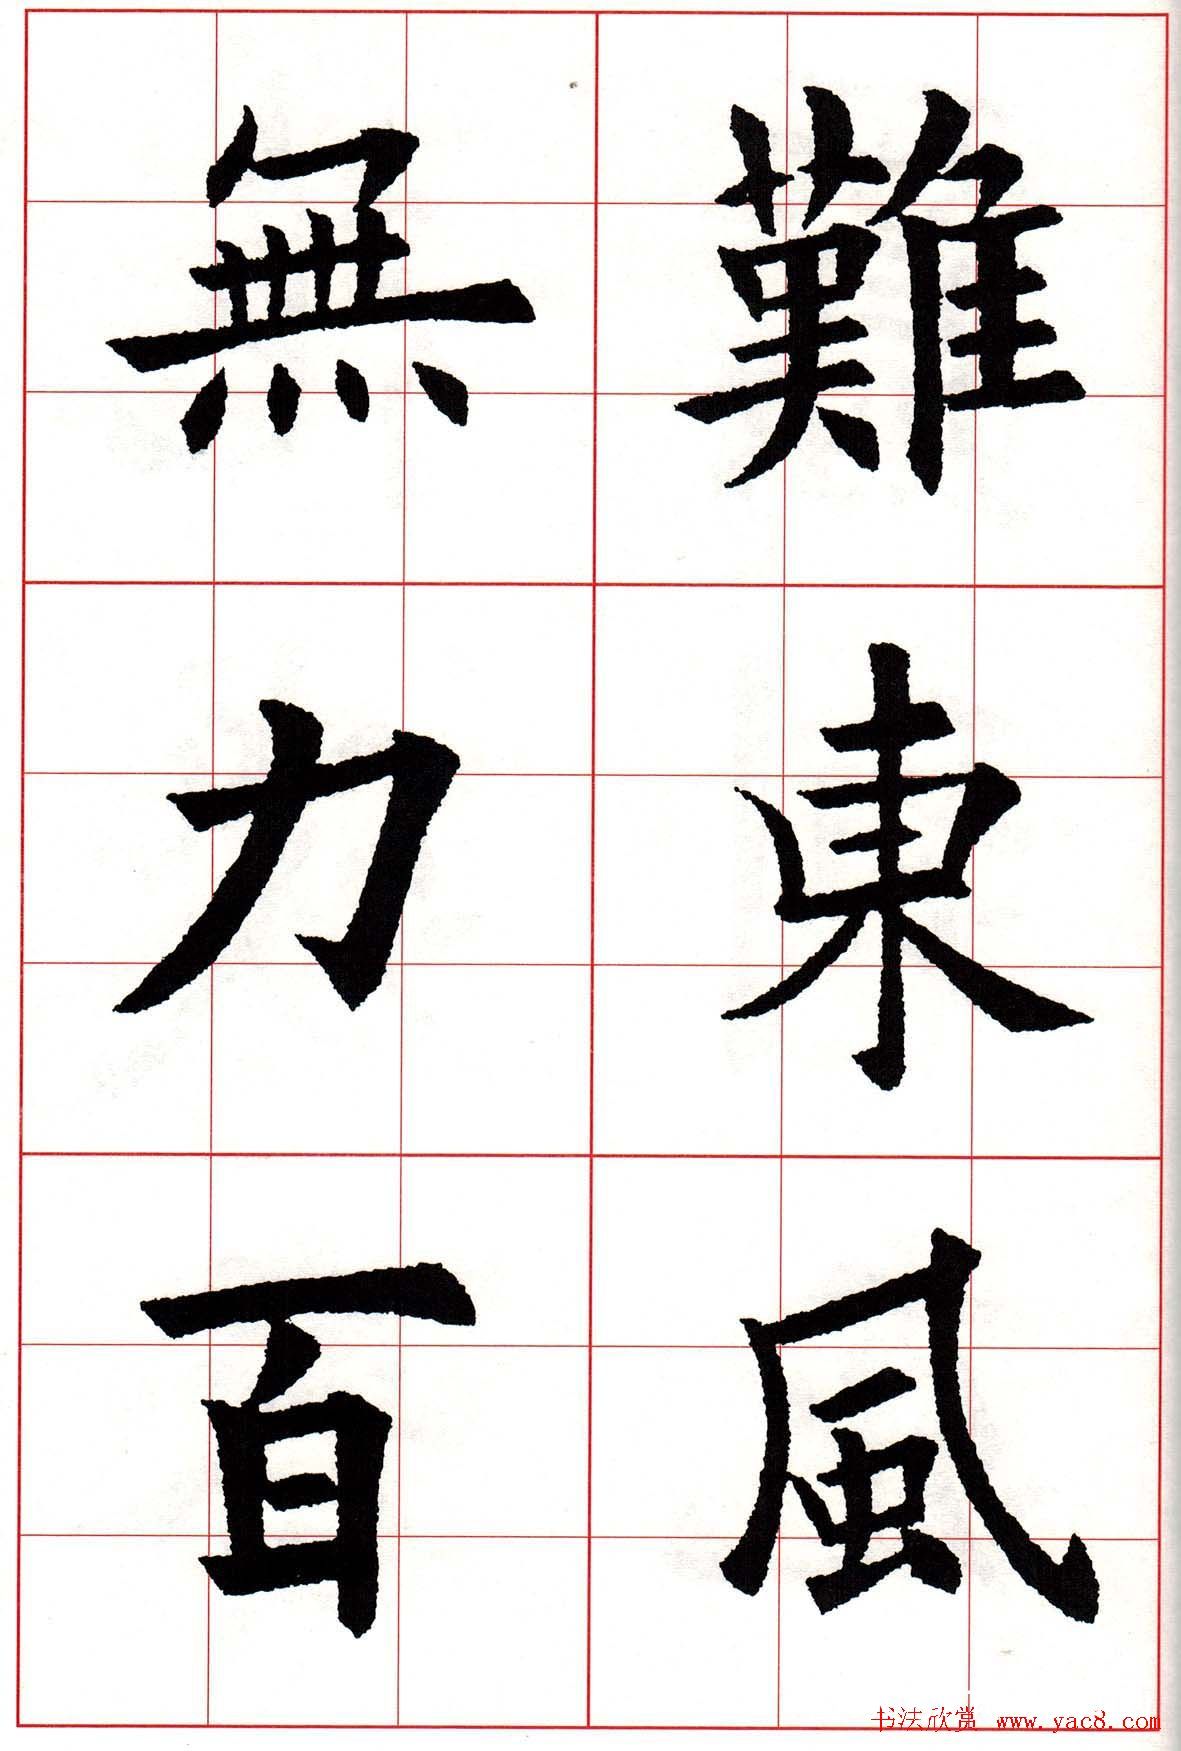 難東風
無力百
书法欣赏 www.yac8.com